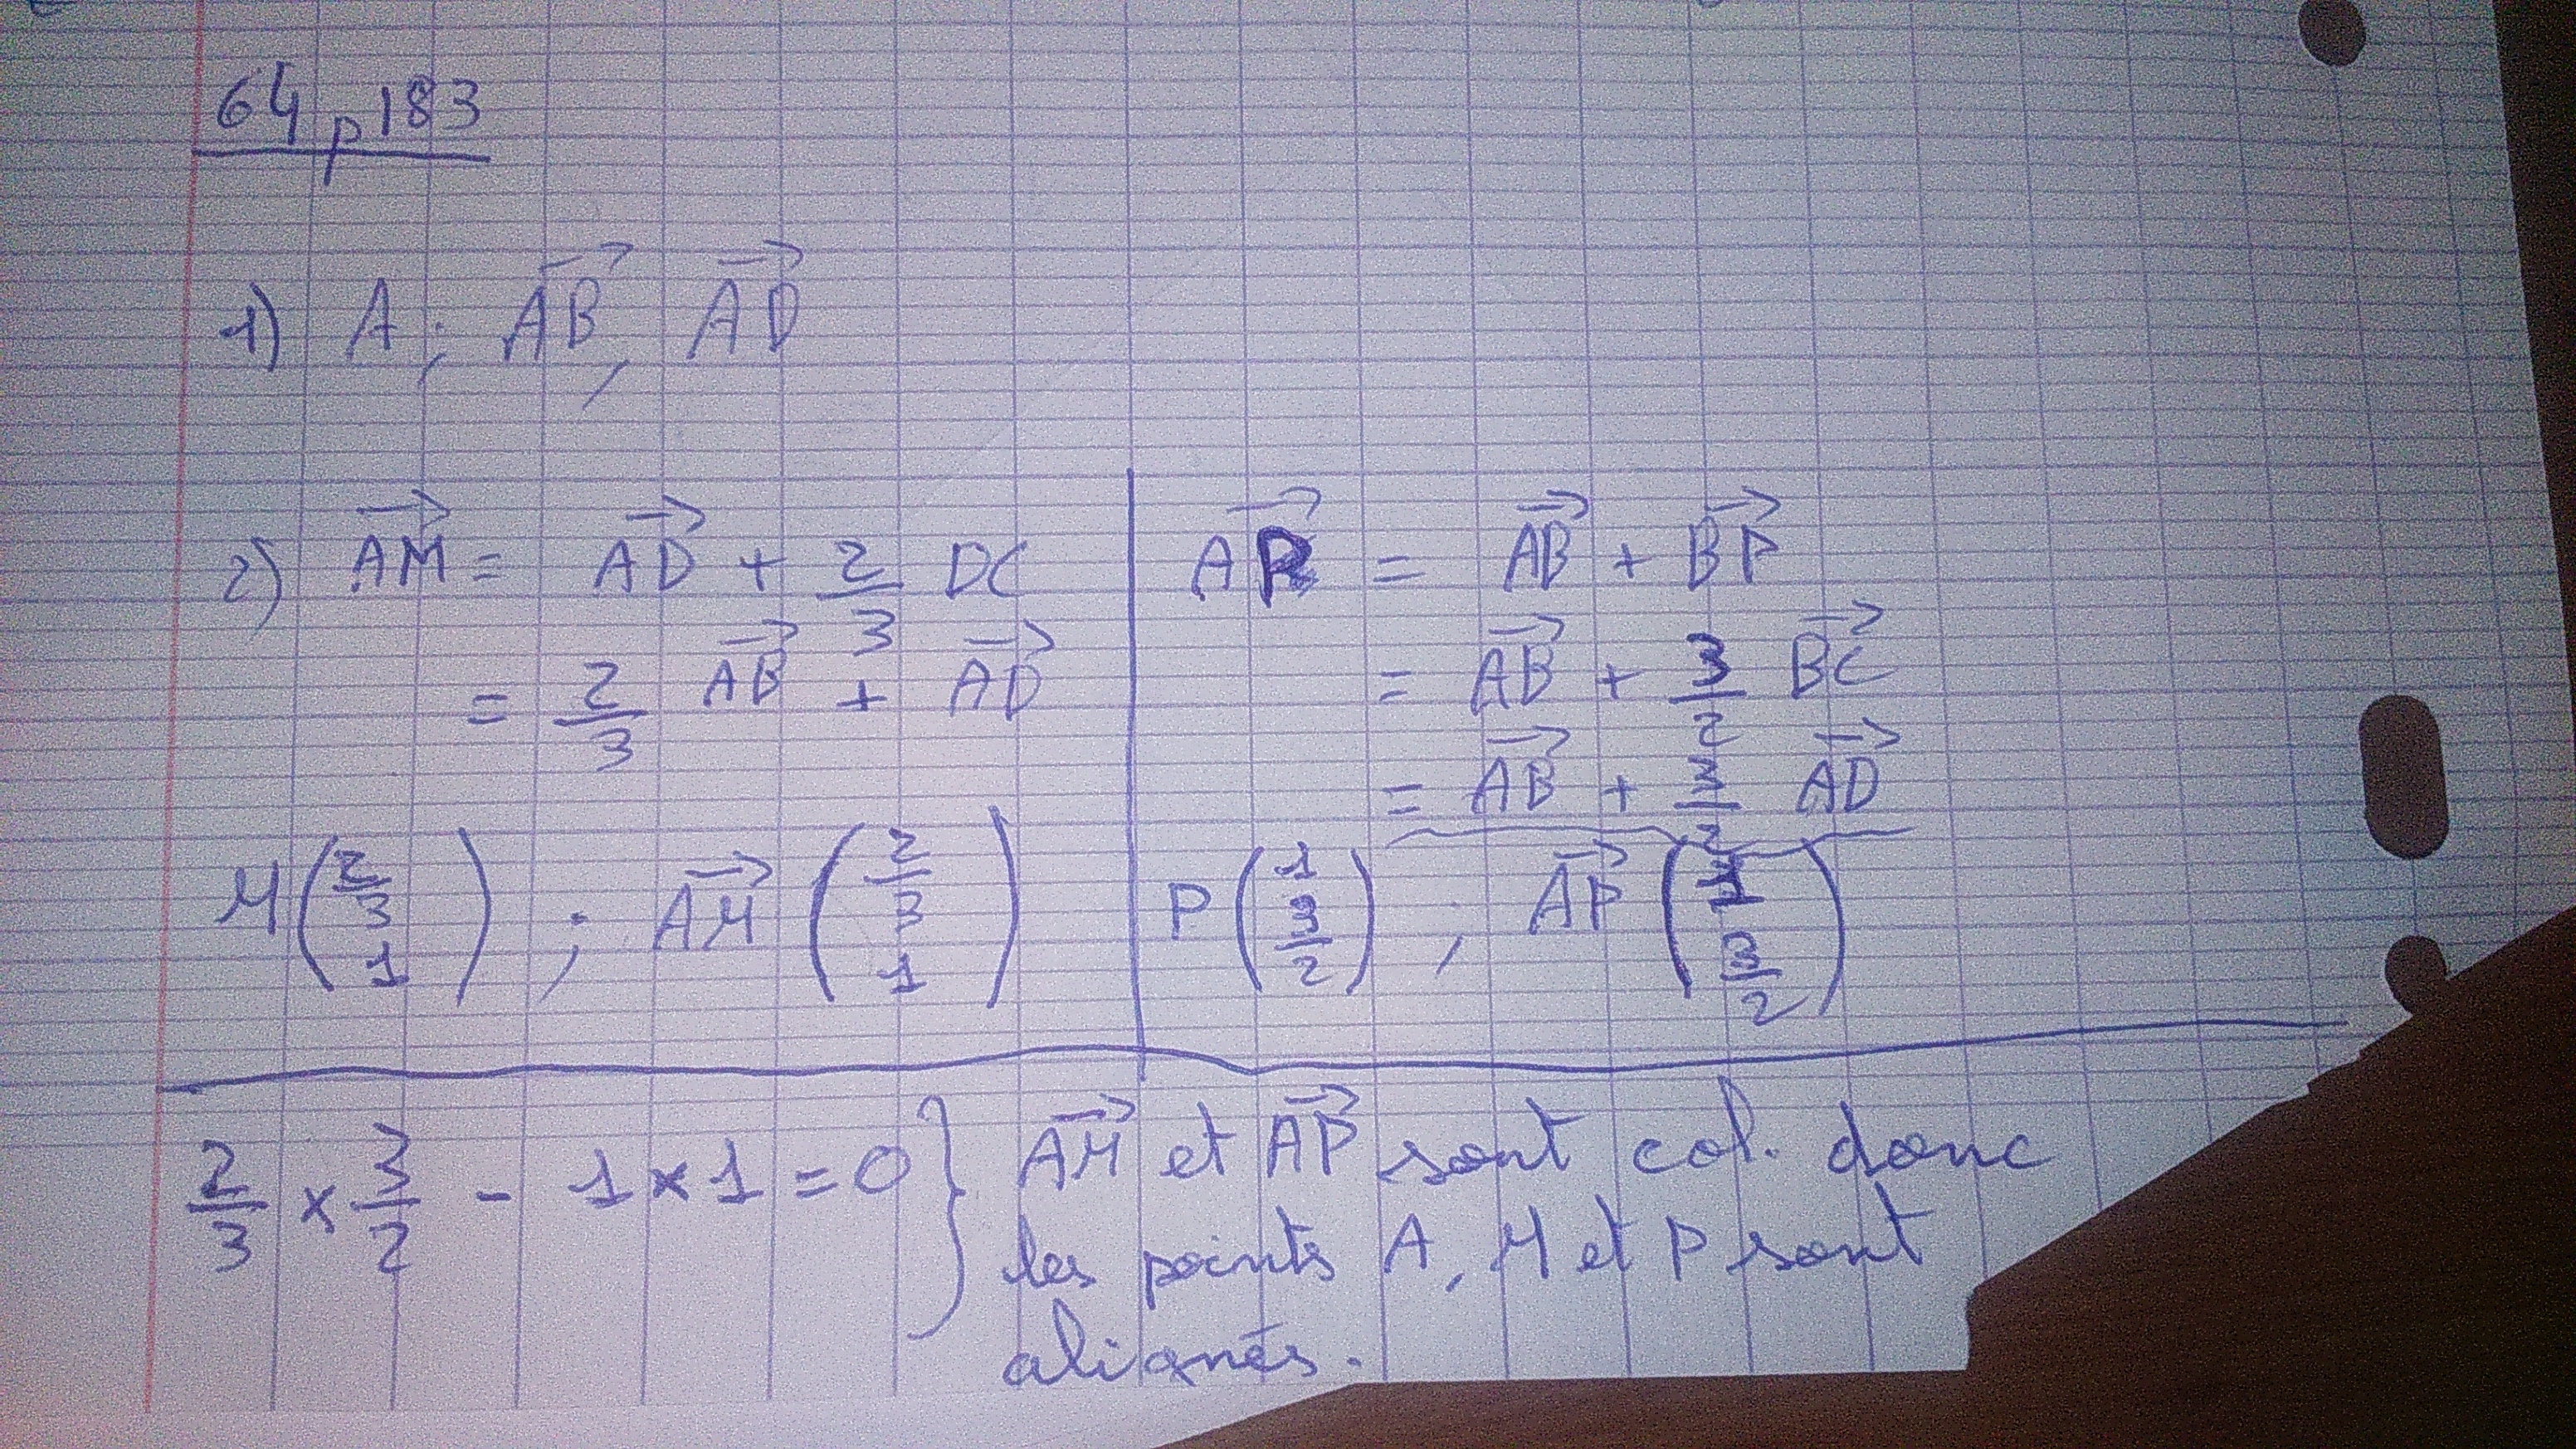 64 p 183
1) A ; AB⃗, AD⃗
2) AM⃗ = AD⃗ + 2/3 DC
= 2/3 AB⃗ + AD⃗
M(2/3 1) ; AM⃗ (2/3 1)
AP⃗ = AB⃗ + BP⃗
= AB⃗ + 3/2 BC⃗
= AB⃗ + 3/2 AD⃗
P(1 3/2) ; AP⃗ (1 3/2)
2/3 × 3/2 - 1 × 1 = 0 } AM⃗ et AP⃗ sont col. donc
les points A, M et P sont
alignés.